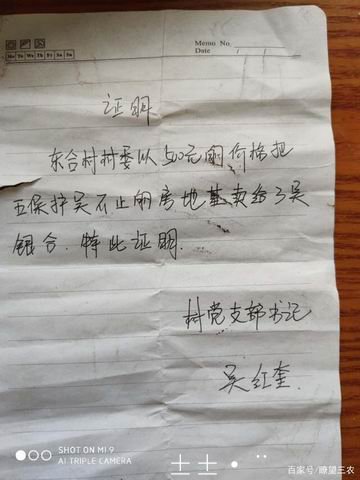 Memo No.
Date
Mo Tu We Th Fr Sa Su
证明
东合村村委以500元的价格把
五保护吴不止的房地基卖给了吴
银合.特此证明.
村党支部书记
吴红奎.
SHOT ON MI 9
AI TRIPLE CAMERA
百家号/瞭望三农